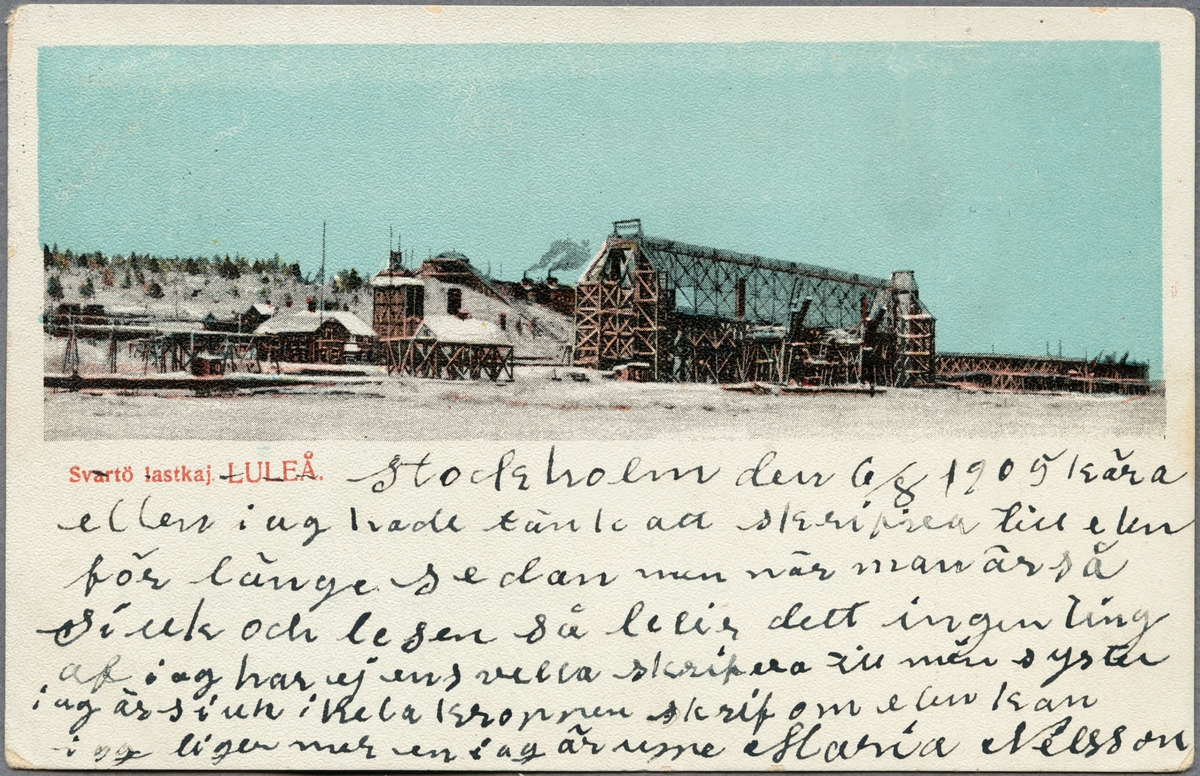 Svartö lastkaj. LULEÅ. Stockholm den 6/8 1905 kära
ellen iag hade tänk att skrifva till elen
för länge sedan men när man är så
siuk och lesen så bleir dett ingen ting
af iag har ej ens vella skrifva till min syster
iag är siuk i hela kroppen skrif om elen kan
iag liger mer en iag är uppe Maria Nilsson